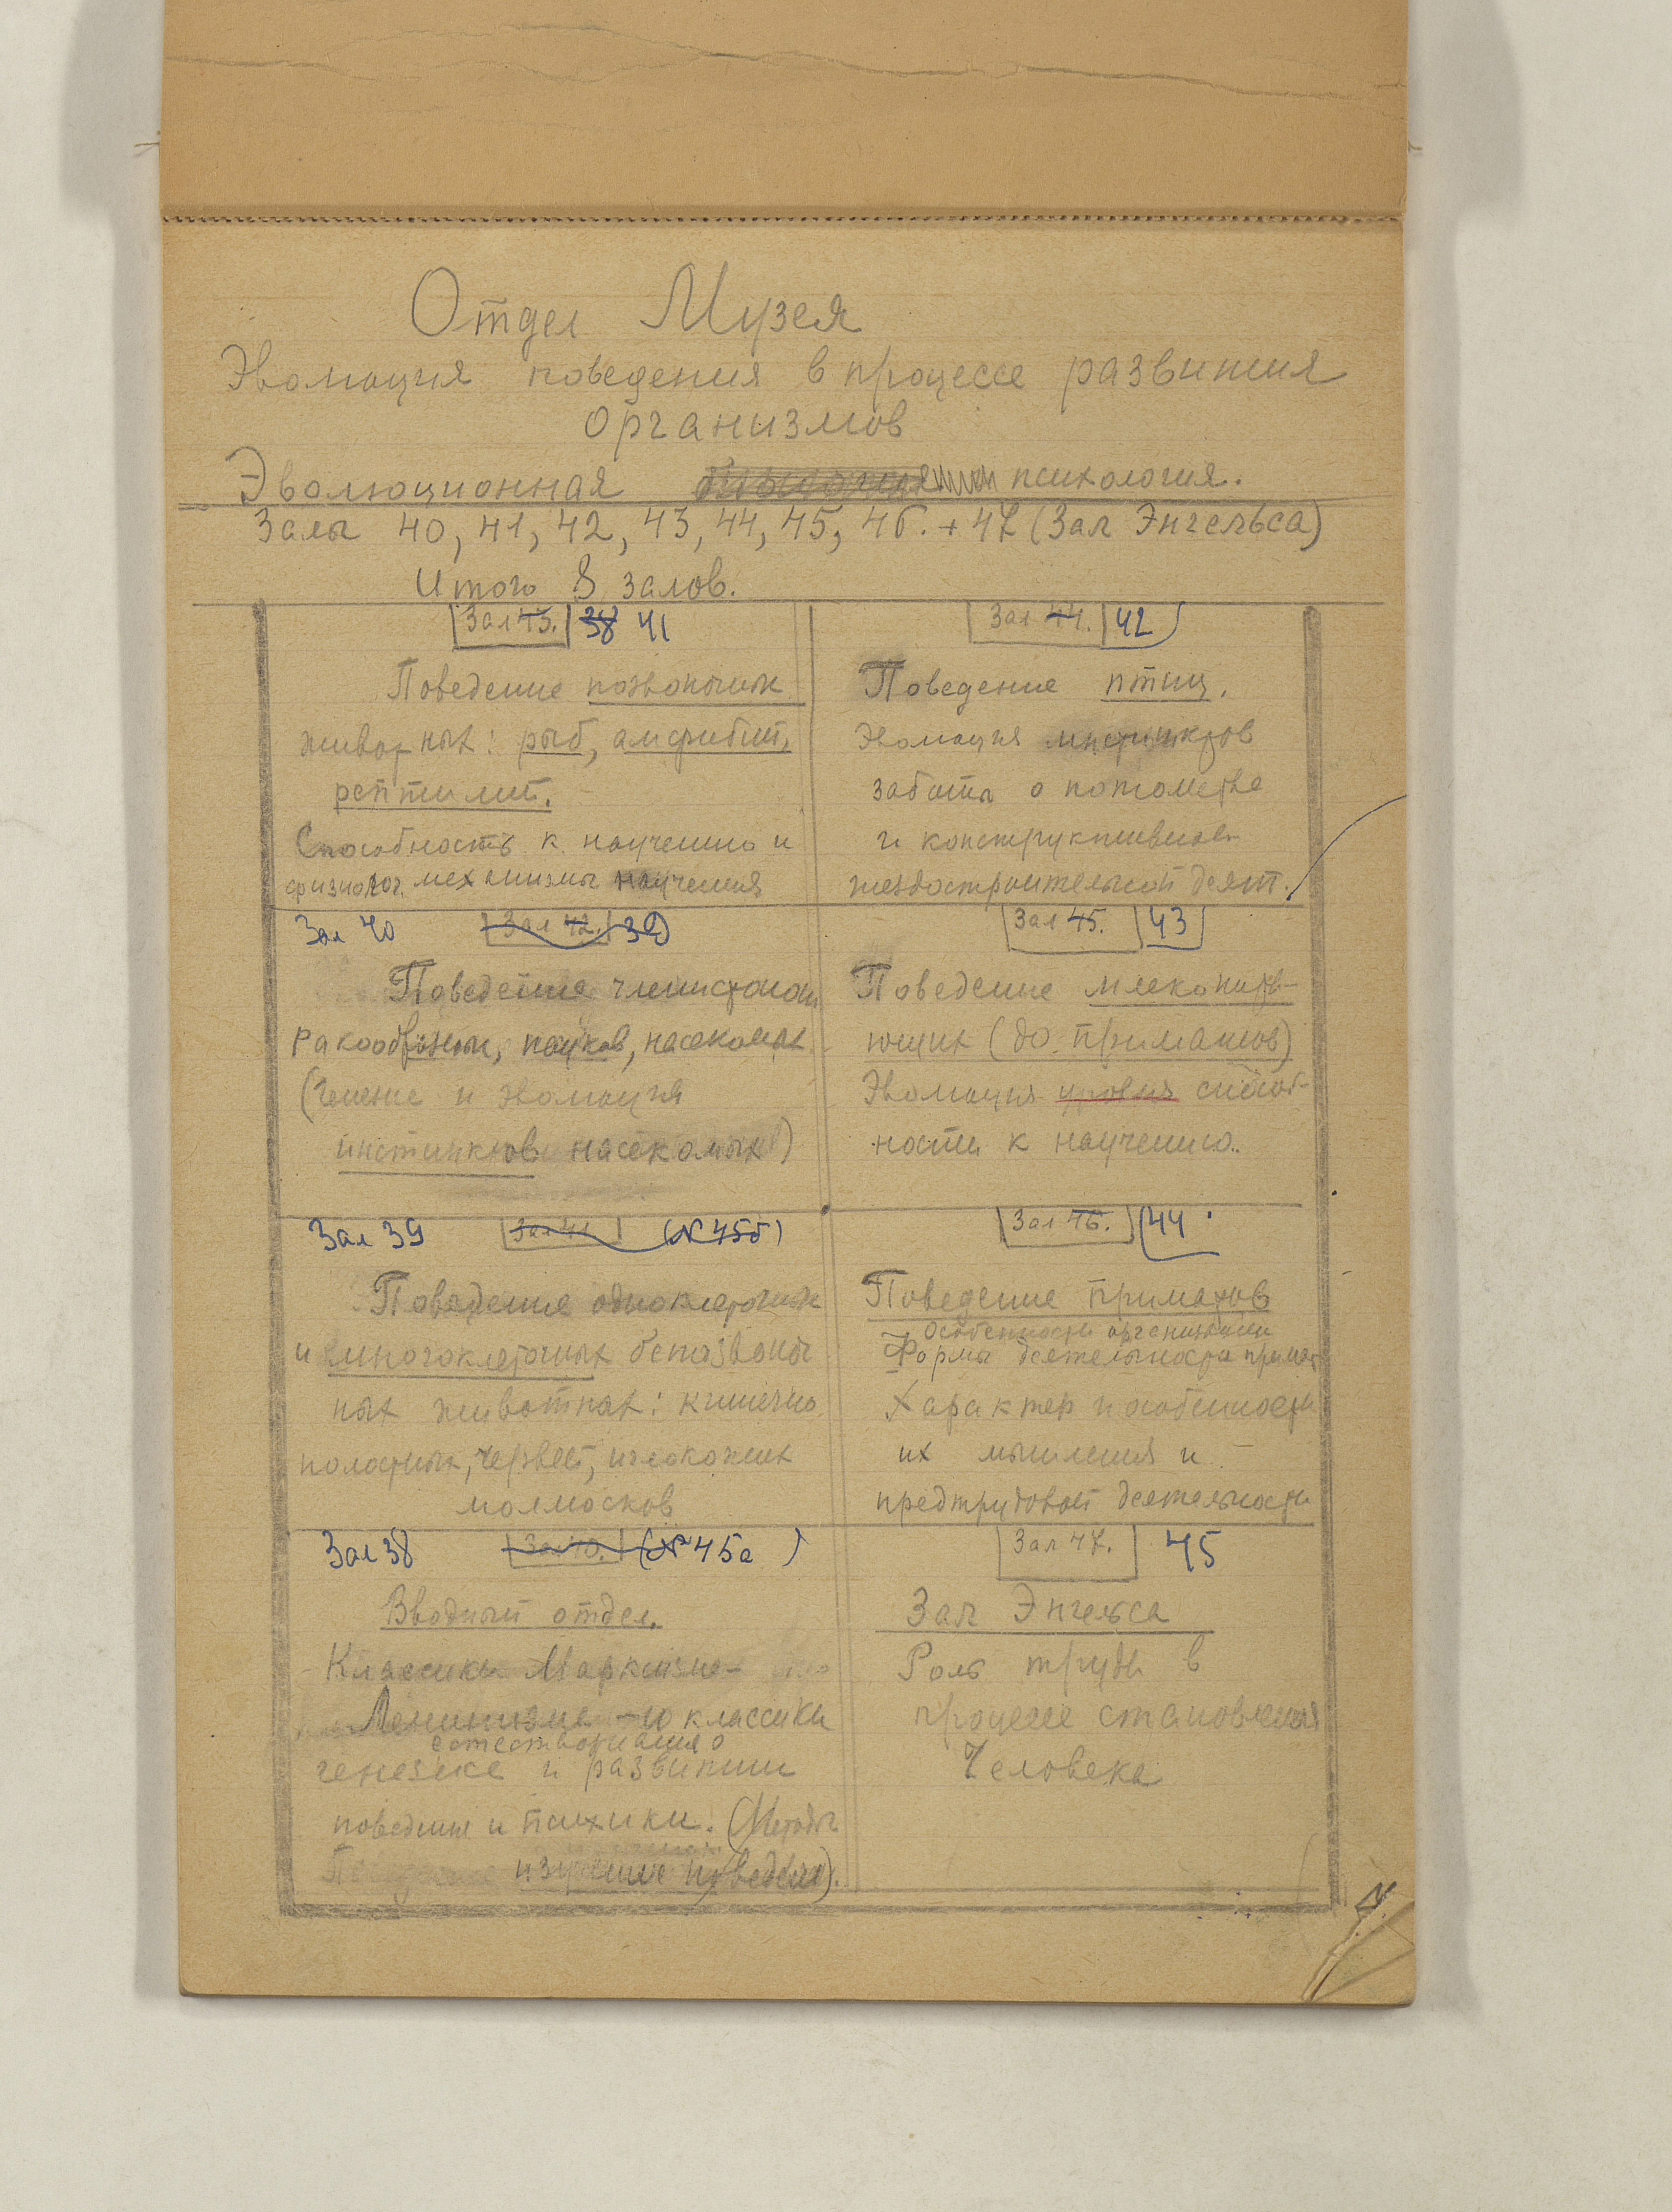 Отдел Музея
Эволюция поведения в процессе развития
организмов
Эволюционная психология.
Залы 40, 41, 42, 43, 44, 45, 46. + 47 (Зал Энгельса)
Итого 8 залов.
Зал 43. 38 41
Поведение позвоночных
животных: рыб, амфибий,
рептилий.
Способность к научению и
физиолог. механизмы научения
Зал 40 Зал 42. 39
Поведение членистоногих
ракообразных, пауков, насекомых
(Генезис и эволюция
инстинктов насекомых)
Зал 39 Зал 41 (№ 45б)
Поведение одноклеточных
и многоклеточных беспозвоноч
ных животных: кишечно
полостных, червей, иглокожих
моллюсков
Зал 38 Зал 40. (№ 45а)
Вводный отдел.
Классики Марксизма-
Ленинизма - и классики
естествознания о
генезисе и развитии
поведения и психики. (Методы
изучения поведения).
Зал 44. 42
Поведение птиц.
Эволюция инстинктов
забота о потомстве
и конструктивной
гнездостроительной деят.
Зал 45. 43
Поведение млекопита-
ющих (до приматов)
Эволюция уровня способ-
ности к научению.
Зал 46. 44
Поведение приматов
Особенности организации
Формы деятельности примат
Характер и особенности
их мышления и
предтрудовой деятельности
Зал 47. 45
Зал Энгельса
Роль труда в
процессе становления
Человека